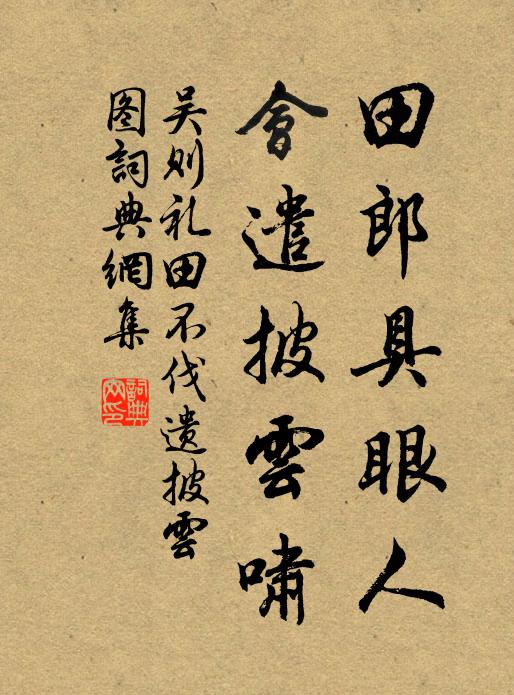 田郎具眼人
會遣披雲嘯
吴则礼田不伐遗披雲
图詞典網集
詞典